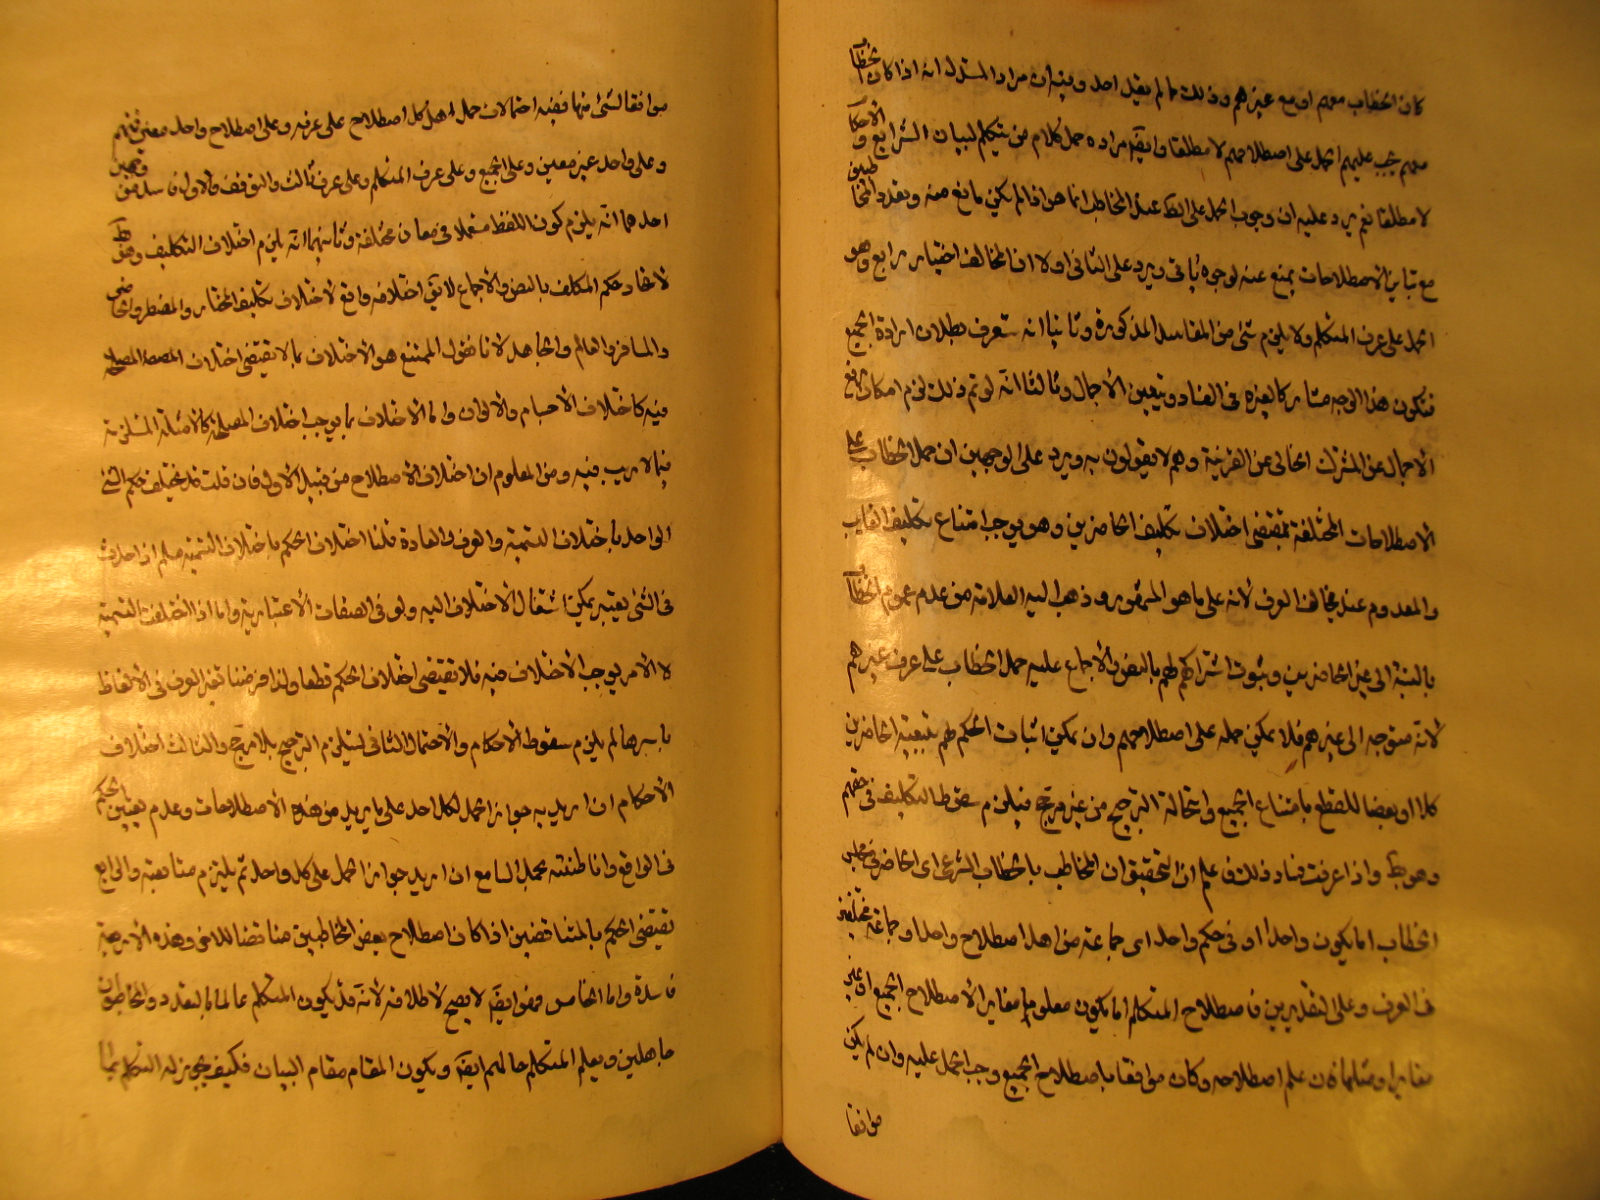 كان الخطاب معهم او مع غيرهم وذلك مما لم يقل احد وفيه ان مراد المستدل انه اذا كان الخطاب
معهم يجب عليهم الحمل على اصطلاحهم لا مطلقا وايضا مراده حمل كلام من يتكلم لبيان الشرايع والاحكام
لا مطلقا نعم يرد عليه ان وجوب الحمل على الظ عند المخاطب انما هو اذا لم يكن مانع منه وتعدد المخاطبين
مع تباين الاصطلاحات يمنع عنه لوجوه ياتى ويرد على الثانى اولا ان المخالف اختيار رابع وهو
الحمل على عرف المتكلم ولا يلزم شئ من المفاسد المذكورة وثانيا انه ستعرف بطلان ارادة الجميع
فتكون هذا الوجه مشاركا لغيره فى الفساد ويتعين الاجمال وثالثا انه لو تم ذلك لزم امكان رفع
الاجمال عن المشترك الخالى عن القرينة وهم لا يقولون به ويرد على الوجهين ان حمل الخطاب على
الاصطلاحات المختلفة تقتضى اختلاف تكليف الحاضرين وهو يوجب امتناع تكليف الغايب
والمعدوم عند مخالف العرف لانه على ما هو المشهور وذهب اليه العلامة من عدم عموم الخطاب
بالنسبة الى غير الحاضرين وثبوت اشتراكهم لهم بالنص والاجماع عليه حمل الخطاب على عرف غيرهم
لانه متوجه الى غيرهم فلا يمكن حمله على اصطلاحهم وان يمكن اثبات الحكم لهم بتبعية الحاضرين
كلا او بعضا للقطع بامتناع الجميع واستحالة الترجيح من غير مرجح فيلزم سقوط التكليف فى حقهم
وهو بط واذا عرفت فساد ذلك فاعلم ان التحقيق ان المخاطب بالخطاب الشرعى اى الحاضر فى مجلس
الخطاب اما يكون واحدا او فى حكم واحد اى جماعة من اهل اصطلاح واحد او جماعة مختلفين
فى العرف وعلى التقديرين فاصطلاح المتكلم اما يكون معلوما مغايرا لاصطلاح الجميع او غير
مغاير او فان علم اصطلاحه وكان موافقا باصطلاح الجميع وجب الحمل عليه وان لم يكن
موافقا
موافقا لشئ منها ففيه احتمالات حمل اهل كل اصطلاح على عرفه وعلى اصطلاح واحد معين منهم
وعلى واحد غير معين وعلى الجميع وعلى عرف المتكلم وعلى عرف ثالث والتوقف والاول فاسد من وجهين
احدهما انه يلزم كون اللفظ مستعملا فى معان مختلفة وثانيهما انه يلزم اختلاف التكليف وهو بط
لاتحاد حكم المكلف بالنص والاجماع لا يق اختلافه واقع لاختلاف تكليف المختار والمضطر والحاضر
والمسافر والعالم والجاهل لانا نقول الممتنع هو الاختلاف بما لا يقتضى اختلاف المصلحة
فيه كاختلاف الاجسام والالوان واما الاختلاف بما يوجب اختلاف المصلحة كالامثلة المستلزمة
فمما لا ريب فيه ومن المعلوم ان اختلاف الاصطلاح من قبيل الاول فان قلت قد يختلف حكم الشئ
الواحد باختلاف التسمية والعرف والعادة قلنا اختلاف الحكم باختلاف التسمية مسلم اذا حدث
فى الشئ تغير يمكن استقال الاختلاف اليه ولو فى الصفات الاعتبارية واما اذا اختلفت التسمية
لا لامر يوجب الاختلاف فيه فلا تقتضى اختلاف الحكم قطعا ولذا فرضنا تغير العرف فى الالفاظ
باسرها لم يلزم سقوط الاحكام والاحتمال الثانى يستلزم الترجيح بلا مرجح والثالث اختلاف
الاحكام ان اريد به جواز الحمل لكل احد على ما يريد من هذه الاصطلاحات وعدم تعيين الحكم
فى الواقع واناطته بحمل السامع ان اريد جواز الحمل على كل واحد ثم يلتزم متابعته والرابع
تقتضى الحكم بالمتناقضين اذا كان اصطلاح بعض المخاطبين مناقضا للاخر وهذه الاربعة
فاسدة واما الخامس فهو ايضا لا يصح لاطلاقه لانه قد يكون المتكلم عالما بالتعدد والمخاطبون
جاهلين ويعلم المتكلم حالهم ايضا ويكون المقام مقام البيان فكيف يجوز له التكلم بما